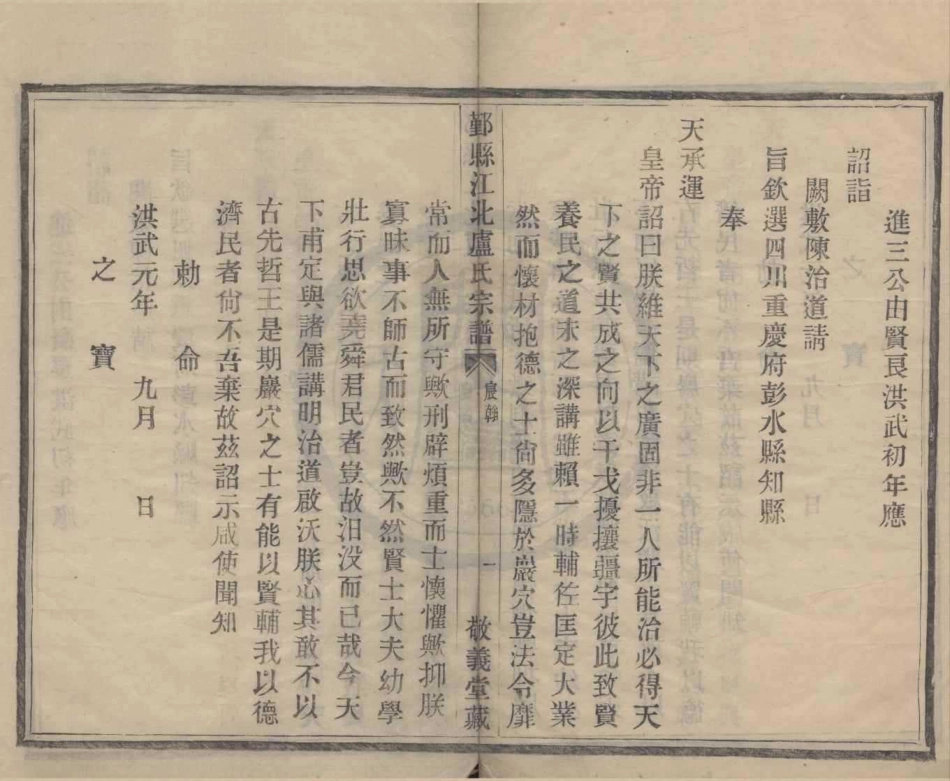 進三公由賢良洪武初年應
詔詣
闕敷陳治道請
旨欽選四川重慶府彭水縣知縣
奉
天承運
皇帝詔曰朕維天下之廣固非一人所能治必得天
下之賢共成之向以干戈擾攘疆宇彼此致賢
養民之道未之深講雖賴一時輔佐匡定大業
然而懷材抱德之士尙多隱於巖穴豈法令靡
鄞縣江北盧氏宗譜 宸翰 一 敬義堂藏
常而人無所守歟刑辟煩重而士懷懼歟抑朕
寡昧事不師古而致然歟不然賢士大夫幼學
壯行思欲堯舜君民者豈故汨没而已哉今天
下甫定與諸儒講明治道啟沃朕心其敢不以
古先哲王是期巖穴之士有能以賢輔我以德
濟民者尙不吾棄故茲詔示咸使聞知
勅命
洪武元年 九月 日
之寶